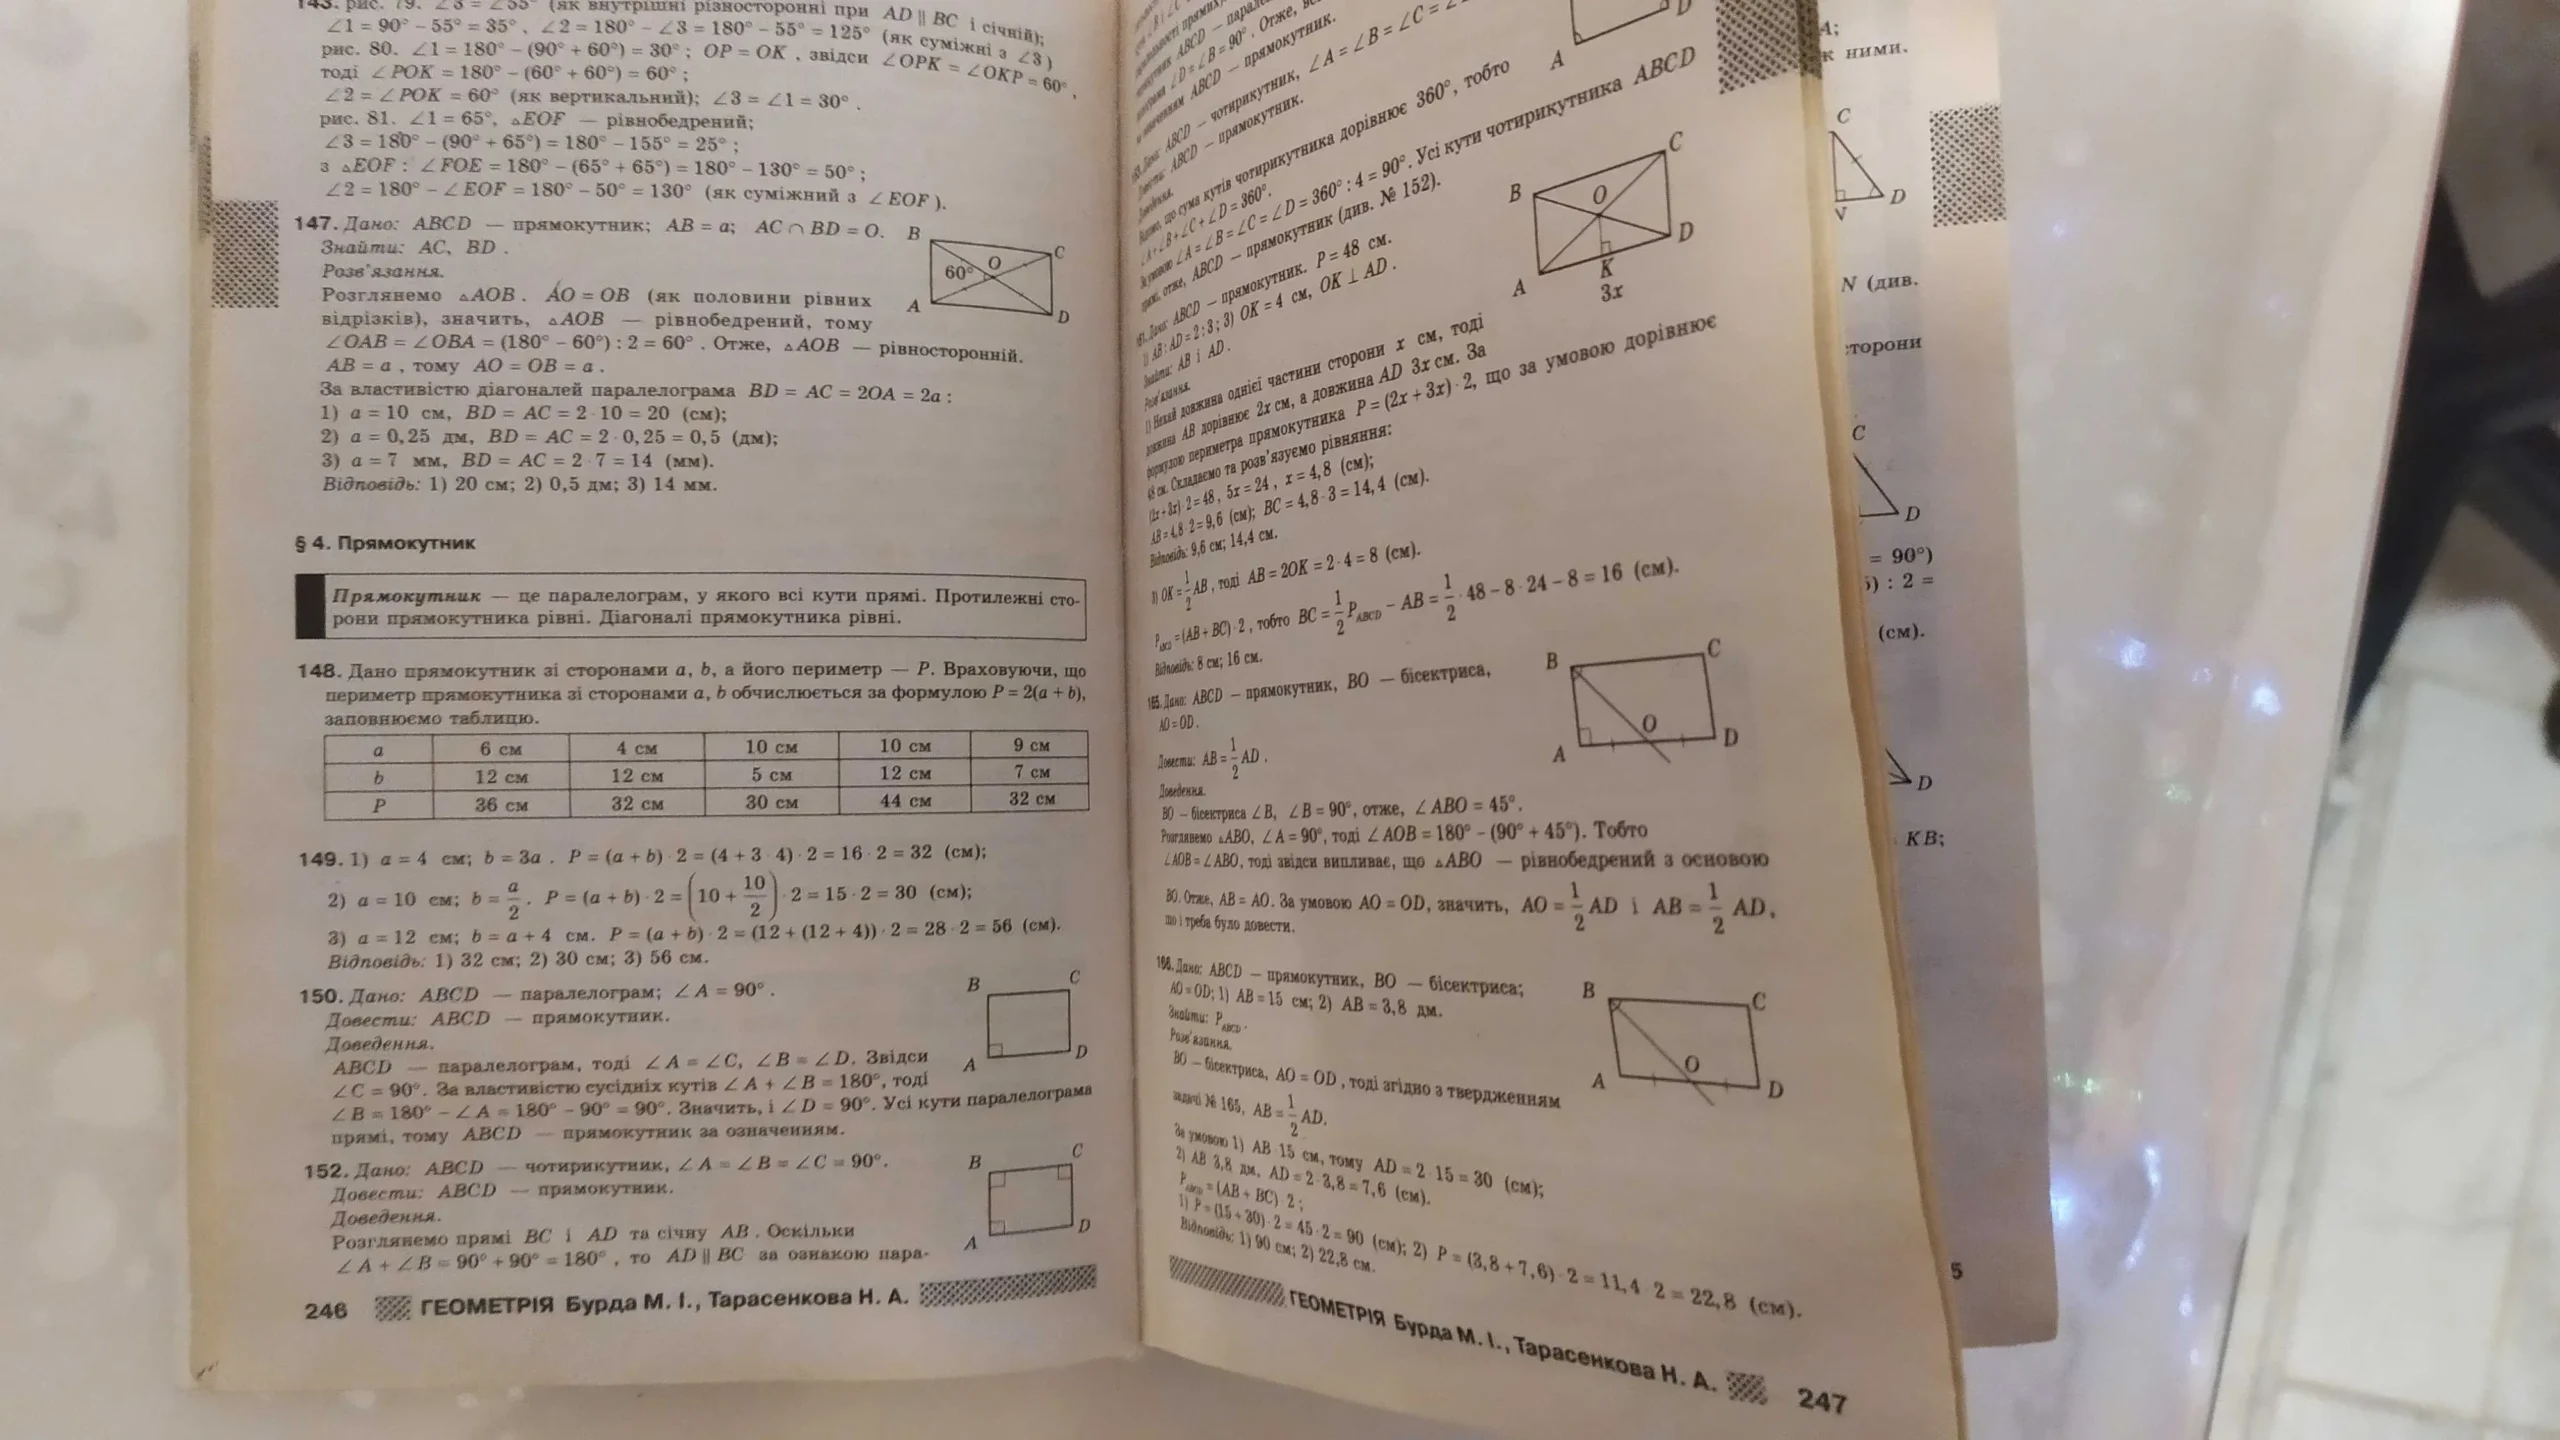 143. рис. 79. ∠3 = ∠55° (як внутрішні різносторонні при AD ∥ BC і січній);
∠1 = 90° − 55° = 35°, ∠2 = 180° − ∠3 = 180° − 55° = 125° (як суміжні з ∠3)
рис. 80. ∠1 = 180° − (90° + 60°) = 30°; OP = OK, звідси ∠OPK = ∠OKP = 60°,
тоді ∠POK = 180° − (60° + 60°) = 60°;
∠2 = ∠POK = 60° (як вертикальний); ∠3 = ∠1 = 30°.
рис. 81. ∠1 = 65°, △EOF — рівнобедрений;
∠3 = 180° − (90° + 65°) = 180° − 155° = 25°;
з △EOF: ∠FOE = 180° − (65° + 65°) = 180° − 130° = 50°;
∠2 = 180° − ∠EOF = 180° − 50° = 130° (як суміжний з ∠EOF).
147. Дано: ABCD — прямокутник; AB = a; AC ∩ BD = O.
Знайти: AC, BD.
Розв'язання.
Розглянемо △AOB. AO = OB (як половини рівних
відрізків), значить, △AOB — рівнобедрений, тому
∠OAB = ∠OBA = (180° − 60°) : 2 = 60°. Отже, △AOB — рівносторонній.
AB = a, тому AO = OB = a.
За властивістю діагоналей паралелограма BD = AC = 2OA = 2a:
1) a = 10 см, BD = AC = 2·10 = 20 (см);
2) a = 0,25 дм, BD = AC = 2·0,25 = 0,5 (дм);
3) a = 7 мм, BD = AC = 2·7 = 14 (мм).
Відповідь: 1) 20 см; 2) 0,5 дм; 3) 14 мм.
B C
60° O
A D
§ 4. Прямокутник
Прямокутник — це паралелограм, у якого всі кути прямі. Протилежні сто-
рони прямокутника рівні. Діагоналі прямокутника рівні.
148. Дано прямокутник зі сторонами a, b, а його периметр — P. Враховуючи, що
периметр прямокутника зі сторонами a, b обчислюється за формулою P = 2(a + b),
заповнюємо таблицю.
a 6 см 4 см 10 см 10 см 9 см
b 12 см 12 см 5 см 12 см 7 см
P 36 см 32 см 30 см 44 см 32 см
149. 1) a = 4 см; b = 3a. P = (a + b)·2 = (4 + 3·4)·2 = 16·2 = 32 (см);
2) a = 10 см; b = a/2. P = (a + b)·2 = (10 + 10/2)·2 = 15·2 = 30 (см);
3) a = 12 см; b = a + 4 см. P = (a + b)·2 = (12 + (12 + 4))·2 = 28·2 = 56 (см).
Відповідь: 1) 32 см; 2) 30 см; 3) 56 см.
150. Дано: ABCD — паралелограм; ∠A = 90°.
Довести: ABCD — прямокутник.
Доведення.
ABCD — паралелограм, тоді ∠A = ∠C, ∠B = ∠D. Звідси
∠C = 90°. За властивістю сусідніх кутів ∠A + ∠B = 180°, тоді
∠B = 180° − ∠A = 180° − 90° = 90°. Значить, і ∠D = 90°. Усі кути паралелограма
прямі, тому ABCD — прямокутник за означенням.
B C
A D
152. Дано: ABCD — чотирикутник, ∠A = ∠B = ∠C = 90°.
Довести: ABCD — прямокутник.
Доведення.
Розглянемо прямі BC і AD та січну AB. Оскільки
∠A + ∠B = 90° + 90° = 180°, то AD ∥ BC за ознакою пара-
B C
A D
246 ГЕОМЕТРІЯ Бурда М. І., Тарасенкова Н. А.
∠D = ∠B = 90°. Отже,
ABCD — прямокутник.
Дано: ABCD — чотирикутник, ∠A = ∠B = ∠C =
Довести: ABCD — прямокутник.
Доведення.
що сума кутів чотирикутника дорівнює 360°, тобто
∠A + ∠B + ∠C + ∠D = 360°.
За умовою ∠A = ∠B = ∠C = ∠D = 360° : 4 = 90°. Усі кути чотирикутника ABCD
прямі, отже, ABCD — прямокутник (див. № 152).
A D
Дано: ABCD — прямокутник. P = 48 см.
1) AB : AD = 2 : 3; 3) OK = 4 см, OK ⊥ AD.
Знайти: AB і AD.
Розв'язання.
1) Нехай довжина однієї частини сторони x см, тоді
довжина AB дорівнює 2x см, а довжина AD 3x см. За
формулою периметра прямокутника P = (2x + 3x)·2, що за умовою дорівнює
48 см. Складаємо та розв'язуємо рівняння:
(2x + 3x)·2 = 48, 5x = 24, x = 4,8 (см);
AB = 4,8·2 = 9,6 (см); BC = 4,8·3 = 14,4 (см).
Відповідь: 9,6 см; 14,4 см.
B C
O
A K D
3x
3) OK = 1/2 AB, тоді AB = 2OK = 2·4 = 8 (см).
P_ABCD = (AB + BC)·2, тобто BC = 1/2 P_ABCD − AB = 1/2·48 − 8·24 − 8 = 16 (см).
Відповідь: 8 см; 16 см.
165. Дано: ABCD — прямокутник, BO — бісектриса,
AO = OD.
Довести: AB = 1/2 AD.
Доведення.
BO — бісектриса ∠B, ∠B = 90°, отже, ∠ABO = 45°.
Розглянемо △ABO, ∠A = 90°, тоді ∠AOB = 180° − (90° + 45°). Тобто
∠AOB = ∠ABO, тоді звідси випливає, що △ABO — рівнобедрений з основою
BO. Отже, AB = AO. За умовою AO = OD, значить, AO = 1/2 AD і AB = 1/2 AD,
що і треба було довести.
B C
A O D
166. Дано: ABCD — прямокутник, BO — бісектриса;
AO = OD; 1) AB = 15 см; 2) AB = 3,8 дм.
Знайти: P_ABCD.
Розв'язання.
BO — бісектриса, AO = OD, тоді згідно з твердженням
задачі № 165, AB = 1/2 AD.
За умовою 1) AB 15 см, тому AD = 2·15 = 30 (см);
2) AB 3,8 дм, AD = 2·3,8 = 7,6 (см).
P_ABCD = (AB + BC)·2;
1) P = (15 + 30)·2 = 45·2 = 90 (см); 2) P = (3,8 + 7,6)·2 = 11,4·2 = 22,8 (см).
Відповідь: 1) 90 см; 2) 22,8 см.
B C
A O D
ГЕОМЕТРІЯ Бурда М. І., Тарасенкова Н. А. 247
A;
ж ними.
C
D
N (див.
сторони
C
D
= 90°)
) : 2 =
(см).
D
KB;
5